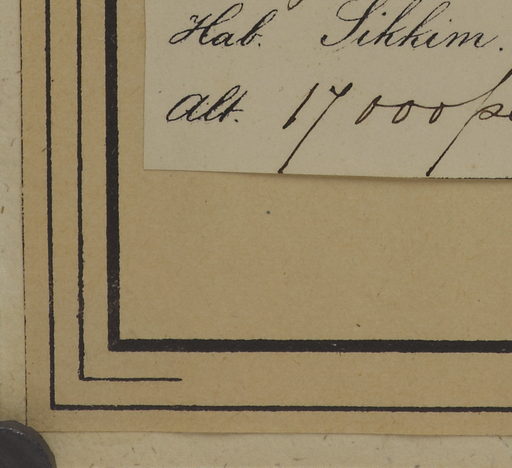 Hab. Sikkim.
Alt. 17000 pe